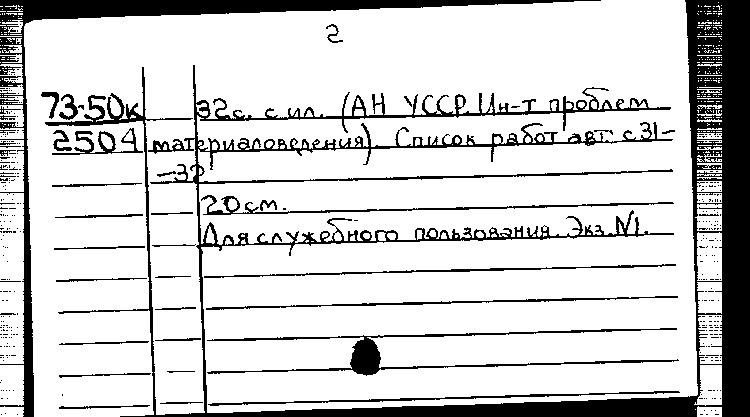 2
73-50к 32с. с ил. (АН УССР. Ин-т проблем
2504 материаловедения). Список работ авт. с.31-
-32
20 см.
Для служебного пользования. Экз. №1.